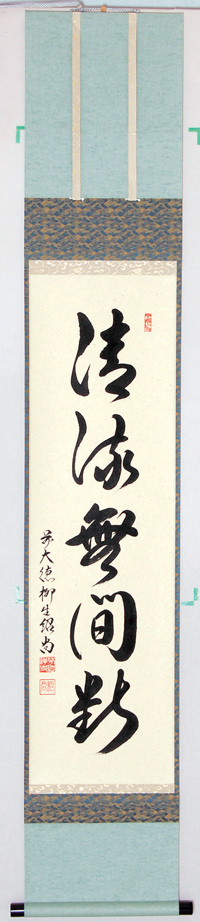 清流無間断
前大徳柳生紹尚